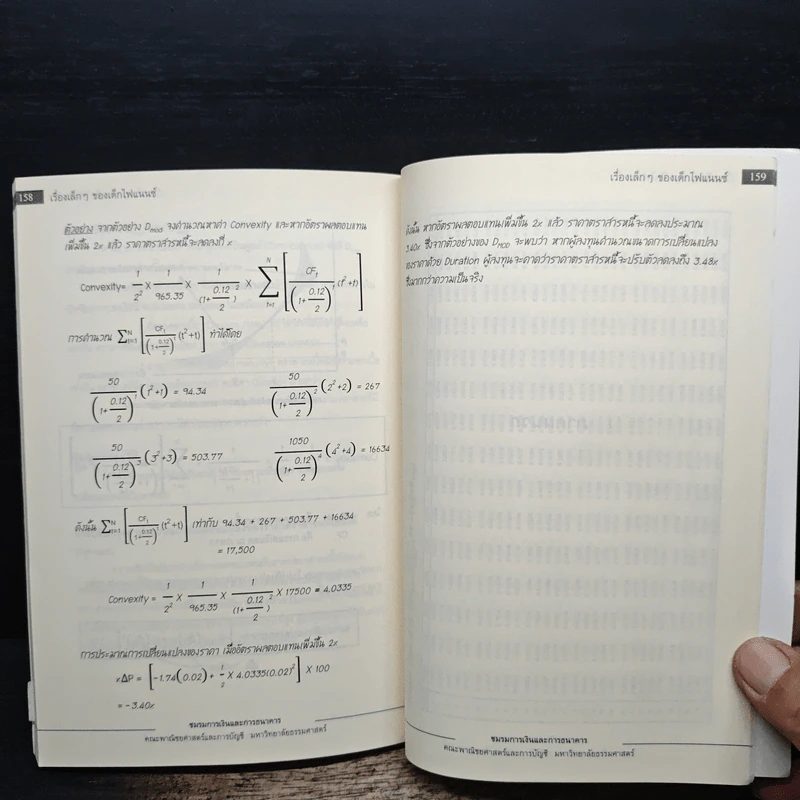 158 เรื่องเล็กๆ ของเด็กไฟแนนซ์
ตัวอย่าง จากตัวอย่าง D_mod จงคำนวณหาค่า Convexity และหากอัตราผลตอบแทน
เพิ่มขึ้น 2% แล้ว ราคาตราสารหนี้จะลดลงกี่ %
Convexity= 1/2² × 1/965.35 × 1/(1+0.12/2)² × ∑_{t=1}^{N} [CF_t/(1+0.12/2)^t (t²+t)]
การคำนวณ ∑_{t=1}^{N} [CF_t/(1+0.12/2)^t (t²+t)] ทำได้โดย
50/(1+0.12/2)^1 (1²+1) = 94.34 50/(1+0.12/2)^2 (2²+2) = 267
50/(1+0.12/2)^3 (3²+3) = 503.77 1050/(1+0.12/2)^4 (4²+4) = 16634
ดังนั้น ∑_{t=1}^{N} [CF_t/(1+0.12/2)^t (t²+t)] เท่ากับ 94.34 + 267 + 503.77 + 16634
= 17,500
Convexity = 1/2² × 1/965.35 × 1/(1+0.12/2)² × 17500 = 4.0335
การประมาณการเปลี่ยนแปลงของราคา เมื่ออัตราผลตอบแทนเพิ่มขึ้น 2%
%ΔP = [-1.74(0.02) + 1/2 × 4.0335(0.02)²] × 100
= -3.40%
ชมรมการเงินและการธนาคาร
คณะพาณิชยศาสตร์และการบัญชี มหาวิทยาลัยธรรมศาสตร์
เรื่องเล็กๆ ของเด็กไฟแนนซ์ 159
ดังนั้น หากอัตราผลตอบแทนเพิ่มขึ้น 2% แล้ว ราคาตราสารหนี้จะลดลงประมาณ
3.40% ซึ่งจากตัวอย่างของ D_MOD จะพบว่า หากผู้ลงทุนคำนวณขนาดการเปลี่ยนแปลง
ของราคาด้วย Duration ผู้ลงทุนจะคาดว่าราคาตราสารหนี้จะปรับตัวลดลงถึง 3.48%
ซึ่งมากกว่าความเป็นจริง
ชมรมการเงินและการธนาคาร
คณะพาณิชยศาสตร์และการบัญชี มหาวิทยาลัยธรรมศาสตร์